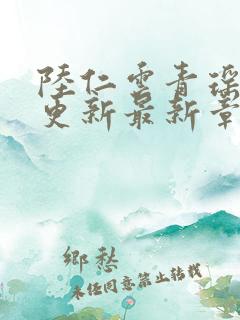 陸仁雲青瑶
更新最新章
鄉愁
未经同意禁止转载